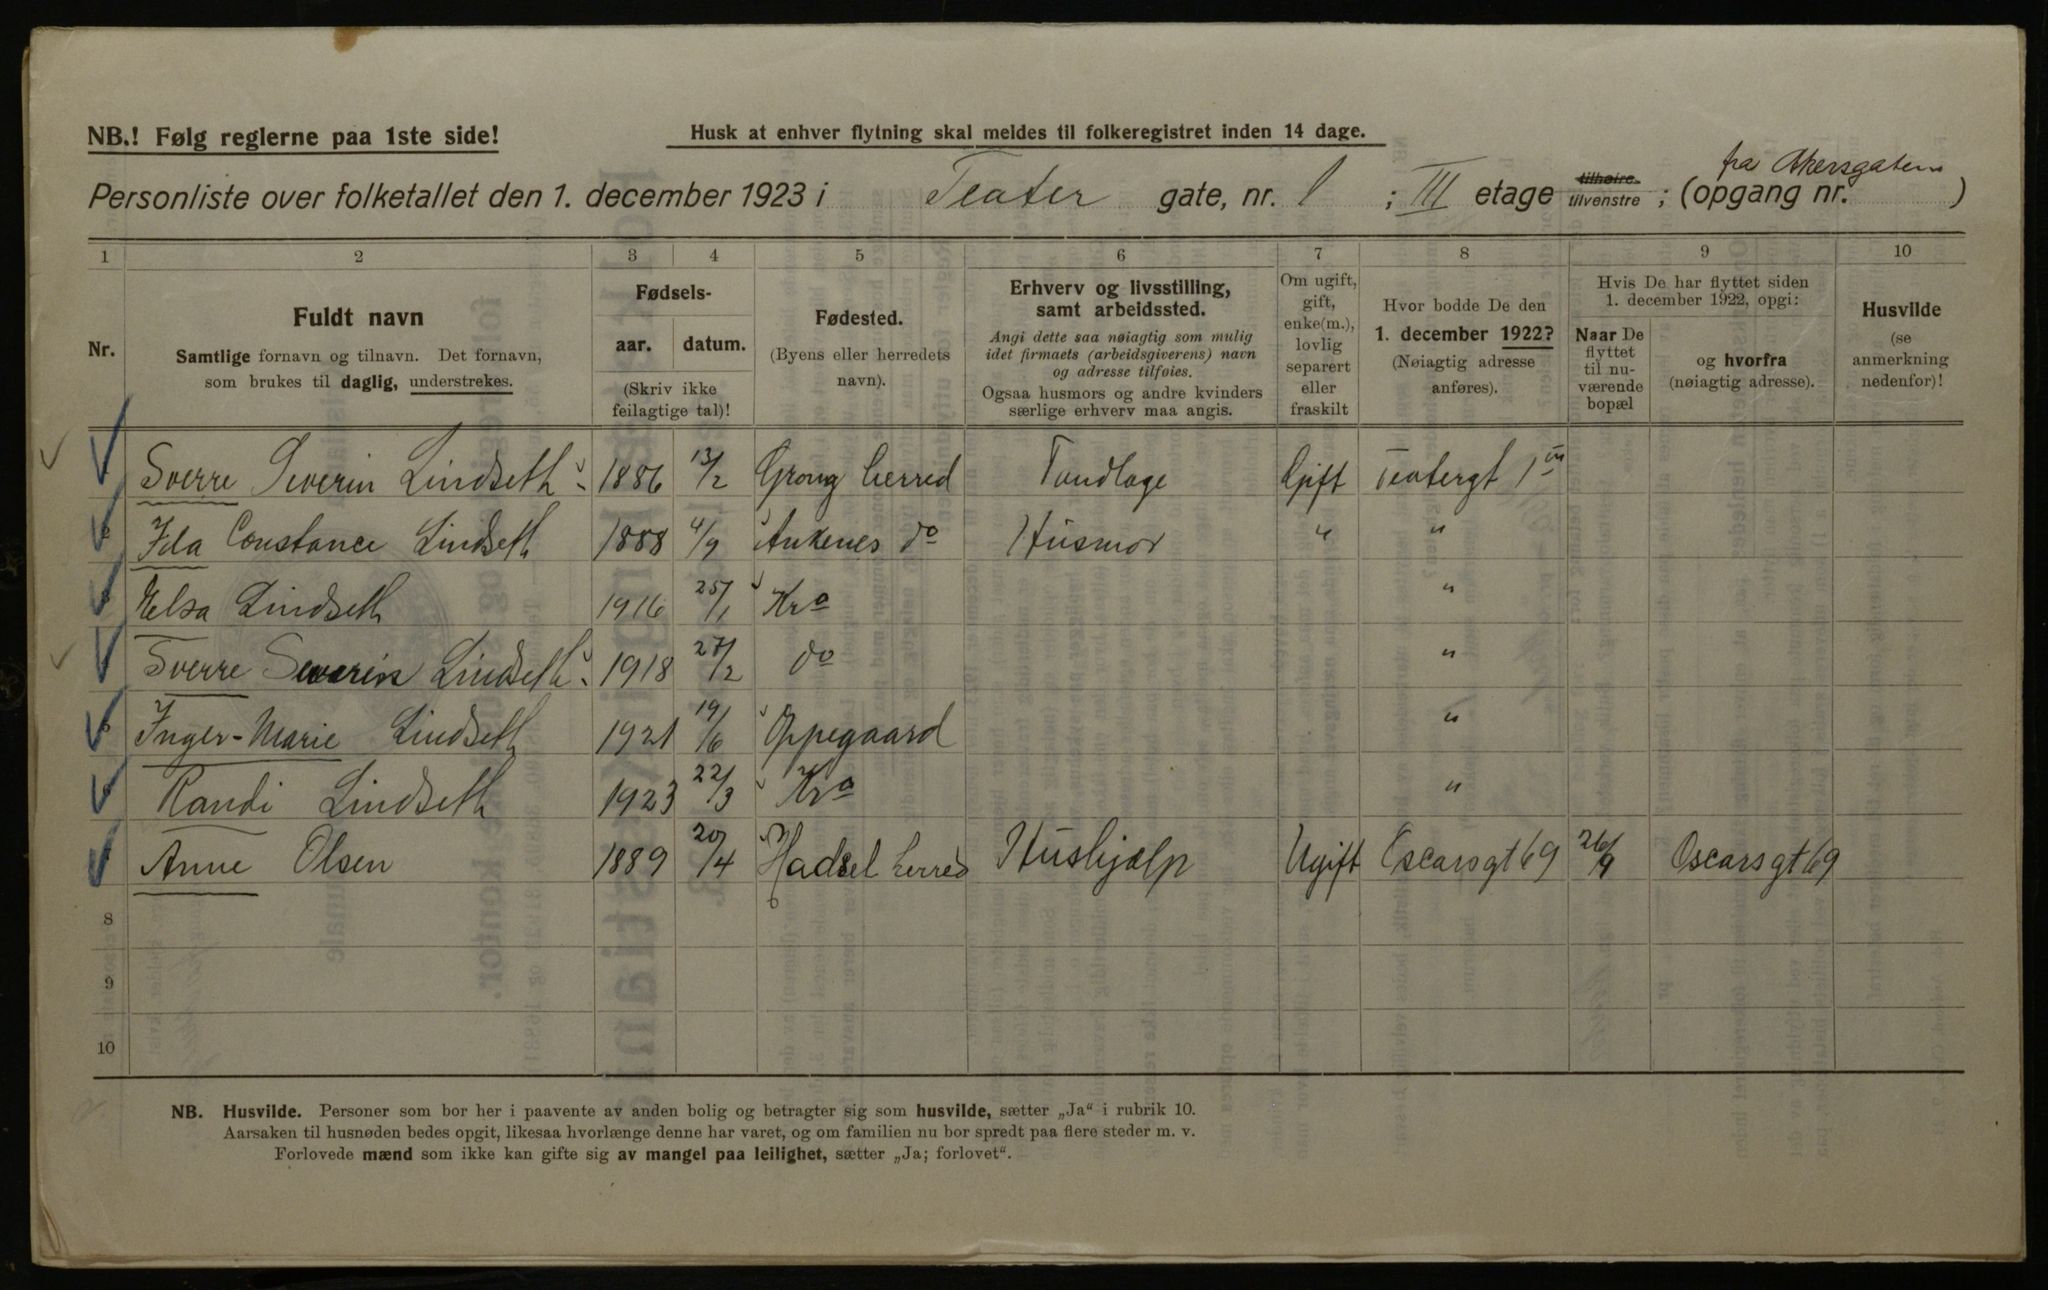 NB.! Følg reglerne paa 1ste side!
Husk at enhver flytning skal meldes til folkeregistret inden 14 dage.
fra Akersgaten
Personliste over folketallet den 1. december 1923 i Teater gate, nr. 1 ; III etage tilhøire tilvenstre ; (opgang nr. )
1 2 3 4 5 6 7 8 9 10
Nr.
Fuldt navn
Samtlige fornavn og tilnavn. Det fornavn,
som brukes til daglig, understrekes.
Fødsels-
aar. datum.
(Skriv ikke
feilagtige tal)!
Fødested.
(Byens eller herredets
navn).
Erhverv og livsstilling,
samt arbeidssted.
Angi dette saa nøiagtig som mulig
idet firmaets (arbeidsgiverens) navn
og adresse tilføies.
Ogsaa husmors og andre kvinders
særlige erhverv maa angis.
Om ugift,
gift,
enke(m.),
lovlig
separert
eller
fraskilt
Hvor bodde De den
1. december 1922?
(Nøiagtig adresse
anføres).
Hvis De har flyttet siden
1. december 1922, opgi:
Naar De
flyttet
til nu-
værende
bopæl
og hvorfra
(nøiagtig adresse).
Husvilde
(se
anmerkning
nedenfor)!
Sverre Severin Lindseth 1886 13/2 Grong herred Tandlæge Gift Teatergt 1 III
Ida Constance Lindseth 1888 4/9 Ankenes do Husmor " "
Elsa Lindseth 1916 25/1 Kra "
Sverre Severin Lindseth 1918 27/2 do "
Inger-Marie Lindseth 1921 19/6 Oppegaard "
Randi Lindseth 1923 22/3 Kra "
Anne Olsen 1889 20/4 Hadsel herred Hushjælp Ugift Oscarsgt 69 26/9 Oscarsgt 69
8
9
10
NB. Husvilde. Personer som bor her i paavente av anden bolig og betragter sig som husvilde, sætter „Ja" i rubrik 10.
Aarsaken til husnøden bedes opgit, likesaa hvorlænge denne har varet, og om familien nu bor spredt paa flere steder m. v.
Forlovede mænd som ikke kan gifte sig av mangel paa leilighet, sætter „Ja; forlovet".